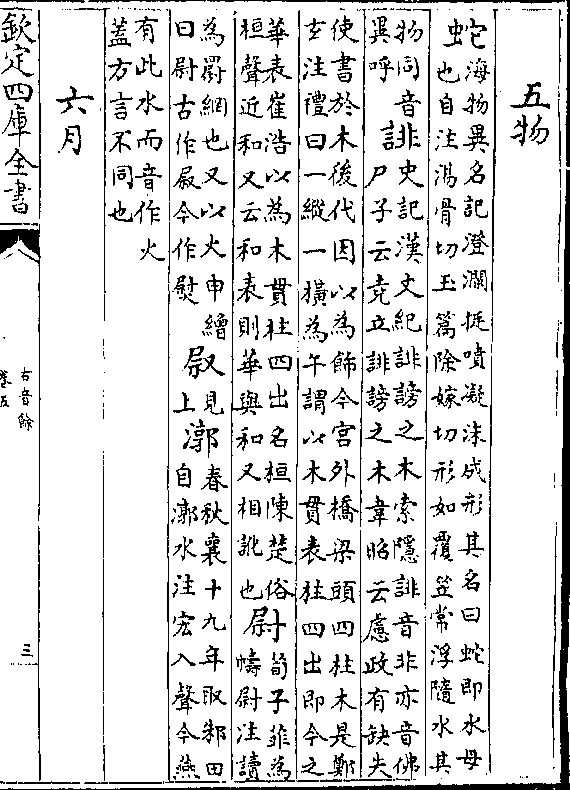 五物
蛇
海物異名記澄瀾挻噴凝沫成形其名曰蛇即水母
也自注潟骨切玉篇除嫁切形如覆笠常浮隨水其
物同音
異呼
誹
史記漢文紀誹謗之木索隱誹音非亦音佛
尸子云堯立誹謗之木韋昭云慮政有缺失
使書於木後代因以為飾今宮外橋梁頭四柱木是鄭
玄注禮曰一縱一橫為午謂以木貫表柱四出即今之
華表崔浩以為木貫柱四出名桓陳楚俗
桓聲近和又云和表則華與和又相訛也
尉
荀子雖為
幬尉注讀
為罻網也又以火申繒
曰尉古作㞡今作熨
㞡
見
上
漷
春秋襄十九年取邾田
自漷水注宏入聲今燕
有此水而音作火
蓋方言不同也
六月
欽定四庫全書
古音餘
卷五
三